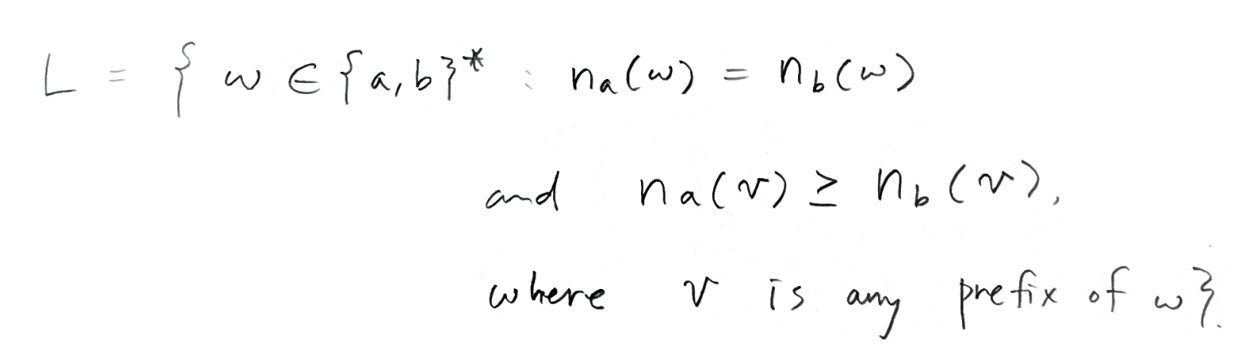 L = { w ∈ {a,b}* : na(w) = nb(w)
and na(v) ≥ nb(v),
where v is any prefix of w}.